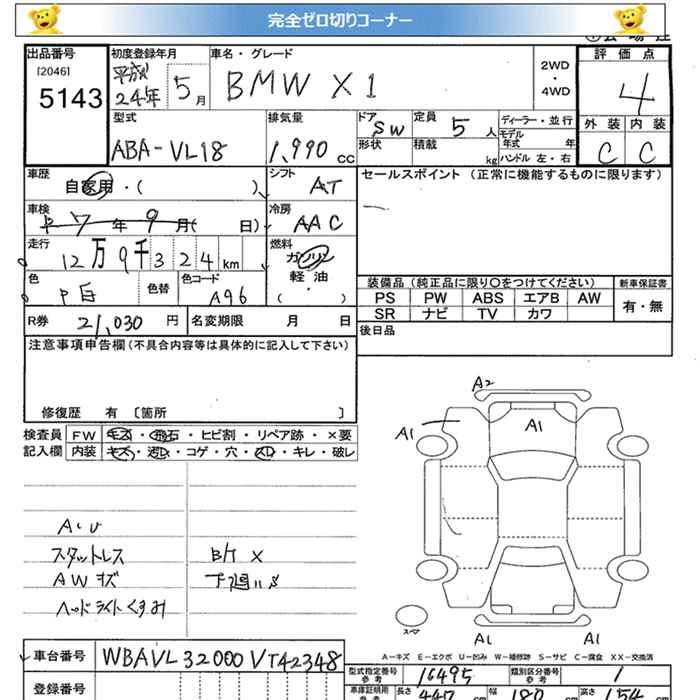 完全ゼロ切りコーナー
出品番号
[2046]
5143
初度登録年月
平成
24年 5月
車名・グレード
BMW X1
2WD
・
4WD
評価点
4
外装 内装
C C
型式
ABA-VL18
排気量
1,990 cc
ドア
SW
形状
定員
5 人
積載
kg
ディーラー・並行
モデル
年式 年
ハンドル 左・右
車歴
自家用・( )
シフト
AT
セールスポイント (正常に機能するものに限ります)
車検
7年 9月( 日)
冷房
AAC
走行
12万9千324km
燃料
ガソリン
軽・油
( )
色
P白
色替
色コード
A96
装備品 (純正品に限り〇をつけてください)
PS PW ABS エアB AW
SR ナビ TV カワ
新車保証書
有・無
R券 21,030 円
名変期限 月 日
後日品
注意事項申告欄(不具合内容等は具体的に記入して下さい)
修復歴 有 [箇所 ]
検査員
記入欄
FW キズ・飛石・ヒビ割・リペア跡・×要
内装 キズ・汚レ・コゲ・穴・スレ・キレ・破レ
A2
A1
A1
AリU
スタットレス
AWキズ
ヘッドライトくすみ
B/T X
下廻りS
スペア
A1
A1
A-キズ E-エクボ U-凹み W-補修跡 S-サビ C-腐食 XX-交換済
車台番号 WBAVL32000VT42348
登録番号
型式指定番号
参考
16495
類別区分番号
参考
1
車庫証明用
参考
長さ 447 cm 幅 180 cm 高さ 154 cm